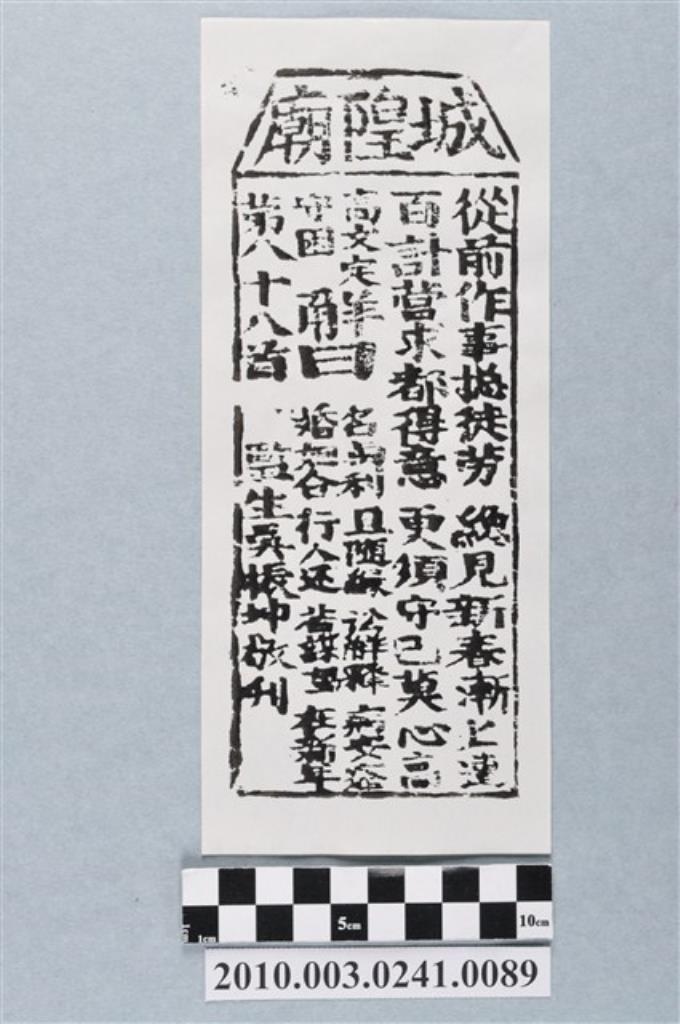 城隍廟
從前作事搃徒劳 見新春漸上
百計營求都得意 更須守己莫心高
高文定 名利 且隨緣 訟解釋 病安痊
守困 曰 婚合 行人还 若謀望 在新年
苐八十八首 監生吳振坤敬刊
5cm
10cm
1cm
2010.003.0241.0089